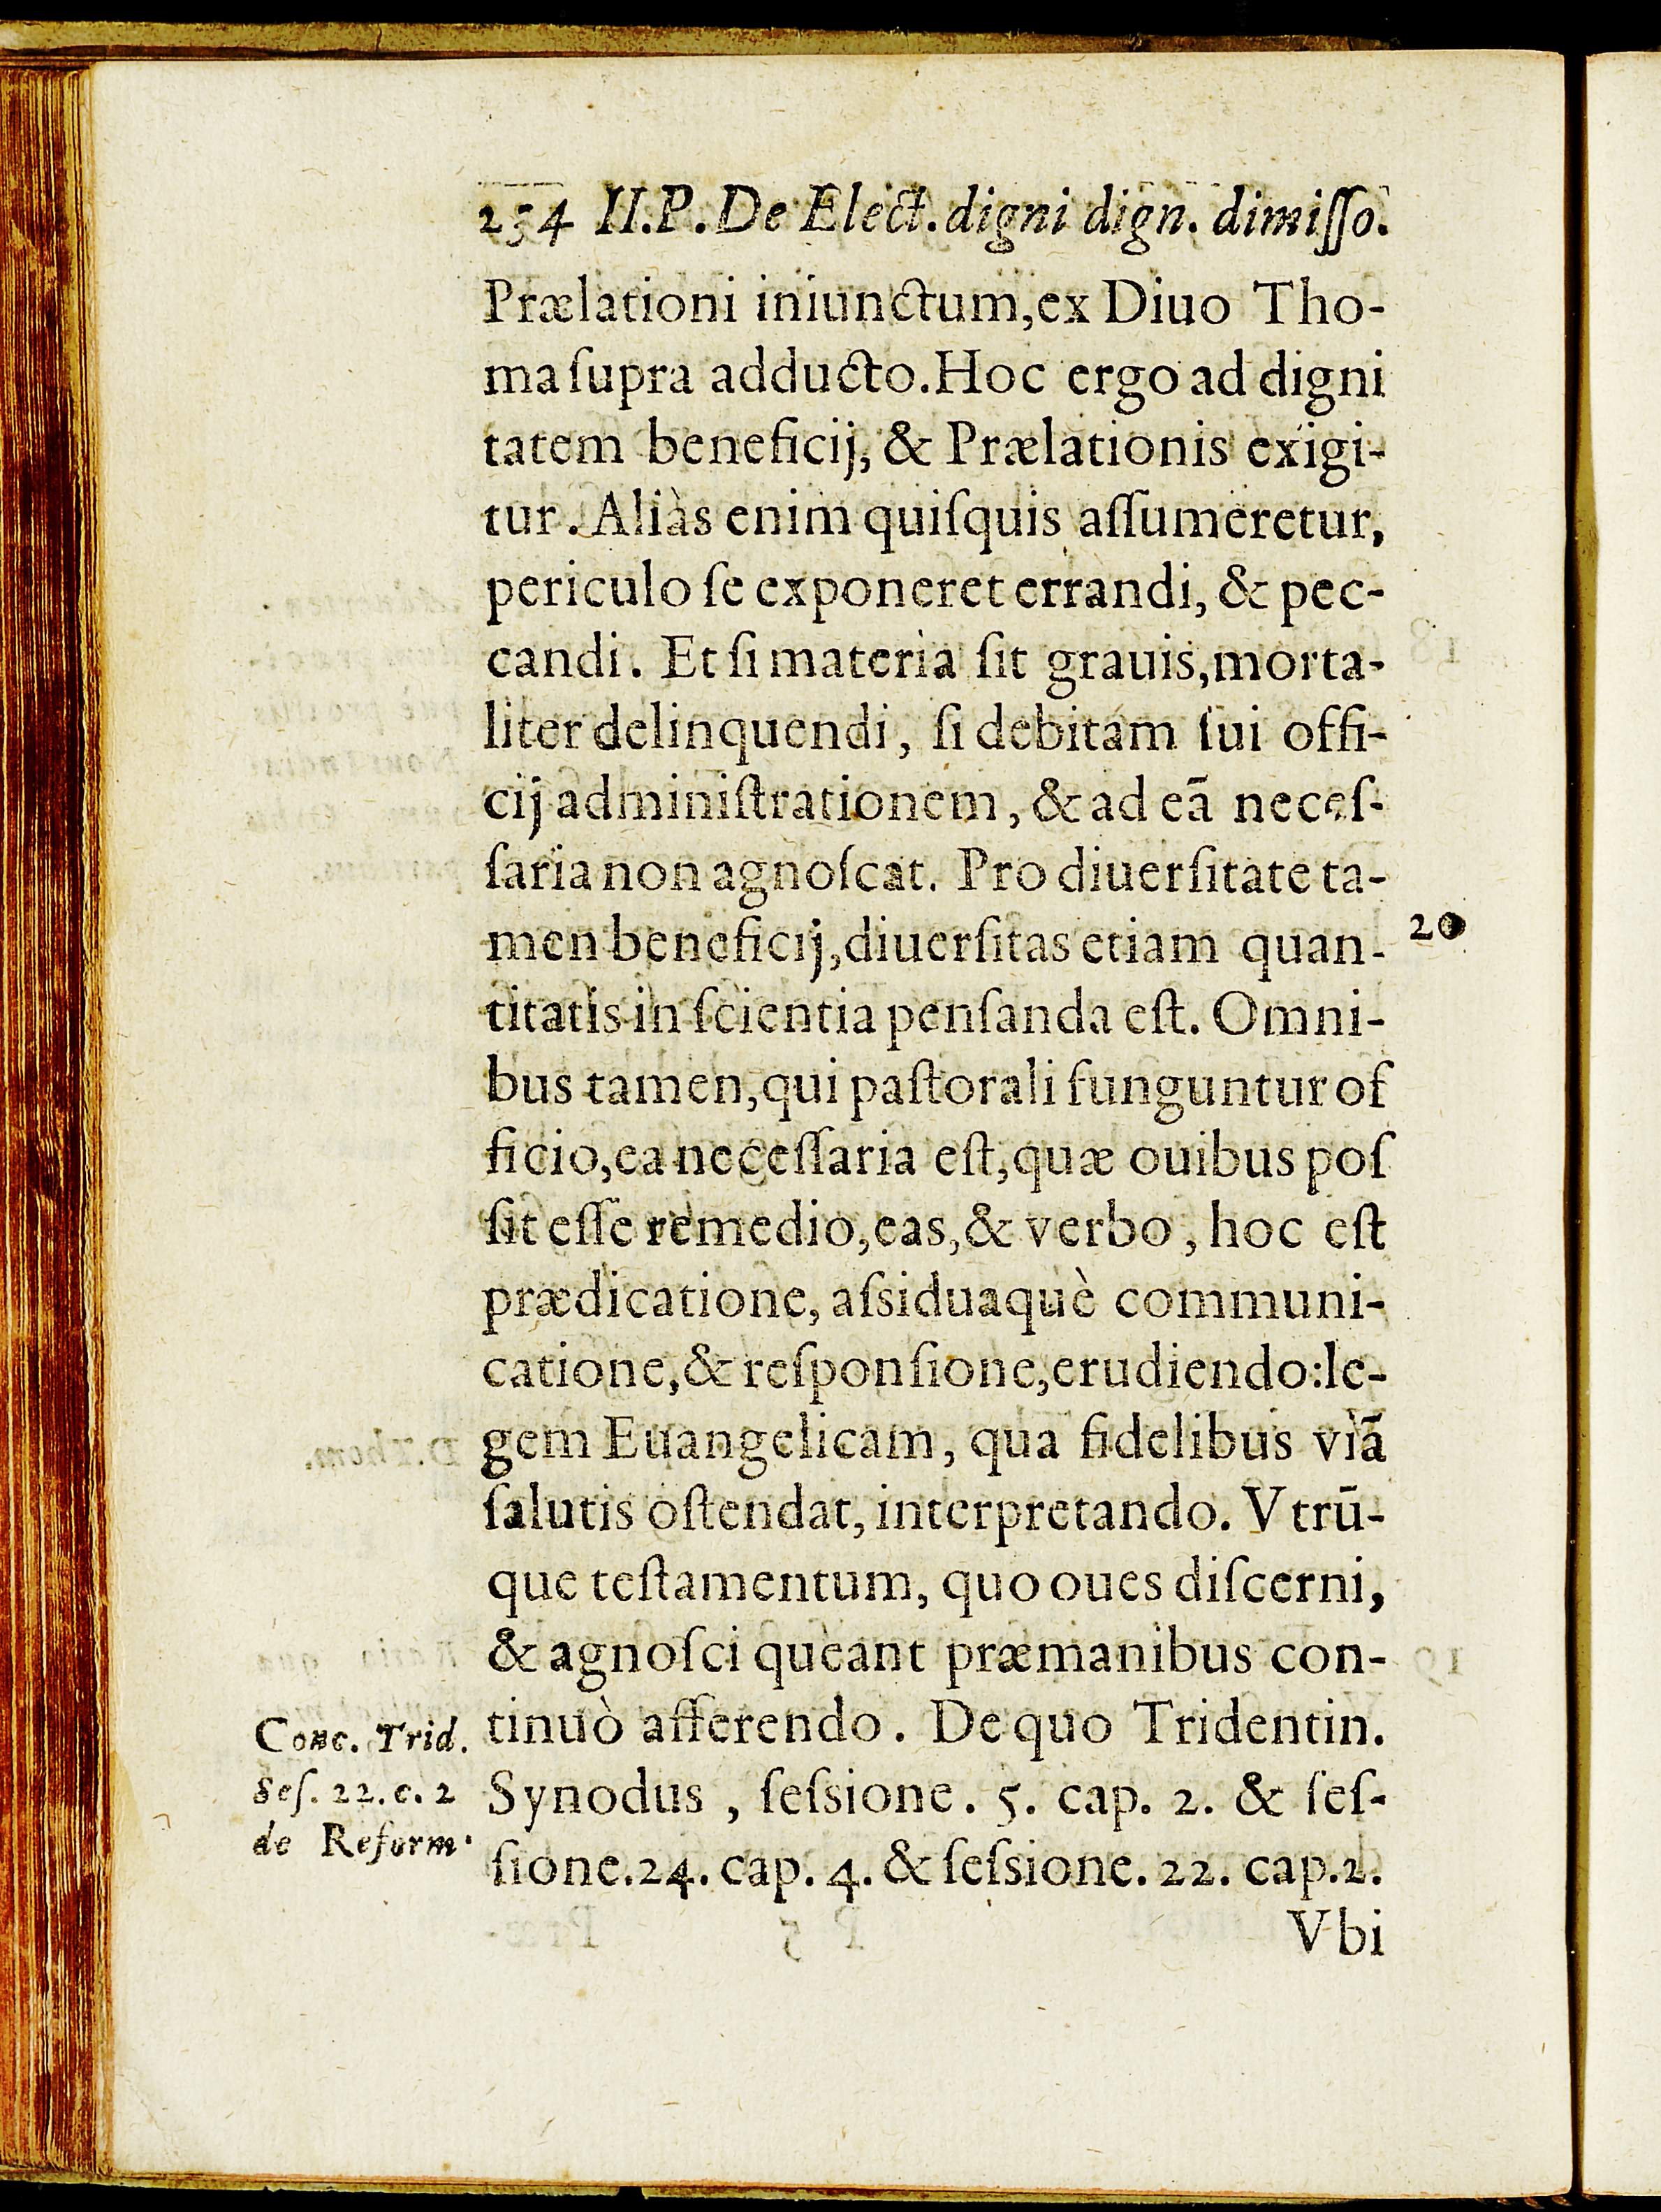 234 II.P.De Elect.digni dign. dimiſſo.
Prælationi iniunctum,ex Diuo Tho-
ma ſupra adducto.Hoc ergo ad digni
tatem beneficij, & Prælationis exigi-
tur. Aliàs enim quiſquis aſſumeretur,
periculo ſe exponeret errandi, & pec-
candi. Et ſi materia ſit grauis,morta-
liter delinquendi, ſi debitam ſui offi-
cij adminiſtrationem, & ad eā neceſ-
ſaria non agnoſcat. Pro diuerſitate ta-
men beneficij,diuerſitas etiam quan-
20
titatis in ſcientia penſanda eſt. Omni-
bus tamen,qui paſtorali funguntur of
ficio,ea neceſſaria eſt,quæ ouibus poſ
ſit eſſe remedio,eas,& verbo, hoc eſt
prædicatione, aſsiduaquè communi-
catione,& reſponſione,erudiendo:le-
gem Euangelicam, qua fidelibus viā
ſalutis oſtendat, interpretando. Vtrū-
que teſtamentum, quo oues diſcerni,
& agnoſci queant præmanibus con-
tinuò afferendo. De quo Tridentin.
Synodus, ſeſsione. 5. cap. 2. & ſeſ-
ſione.24. cap. 4. & ſeſsione. 22. cap.2.
Conc. Trid.
Seſ. 22. c. 2
de Reform.
Vbi